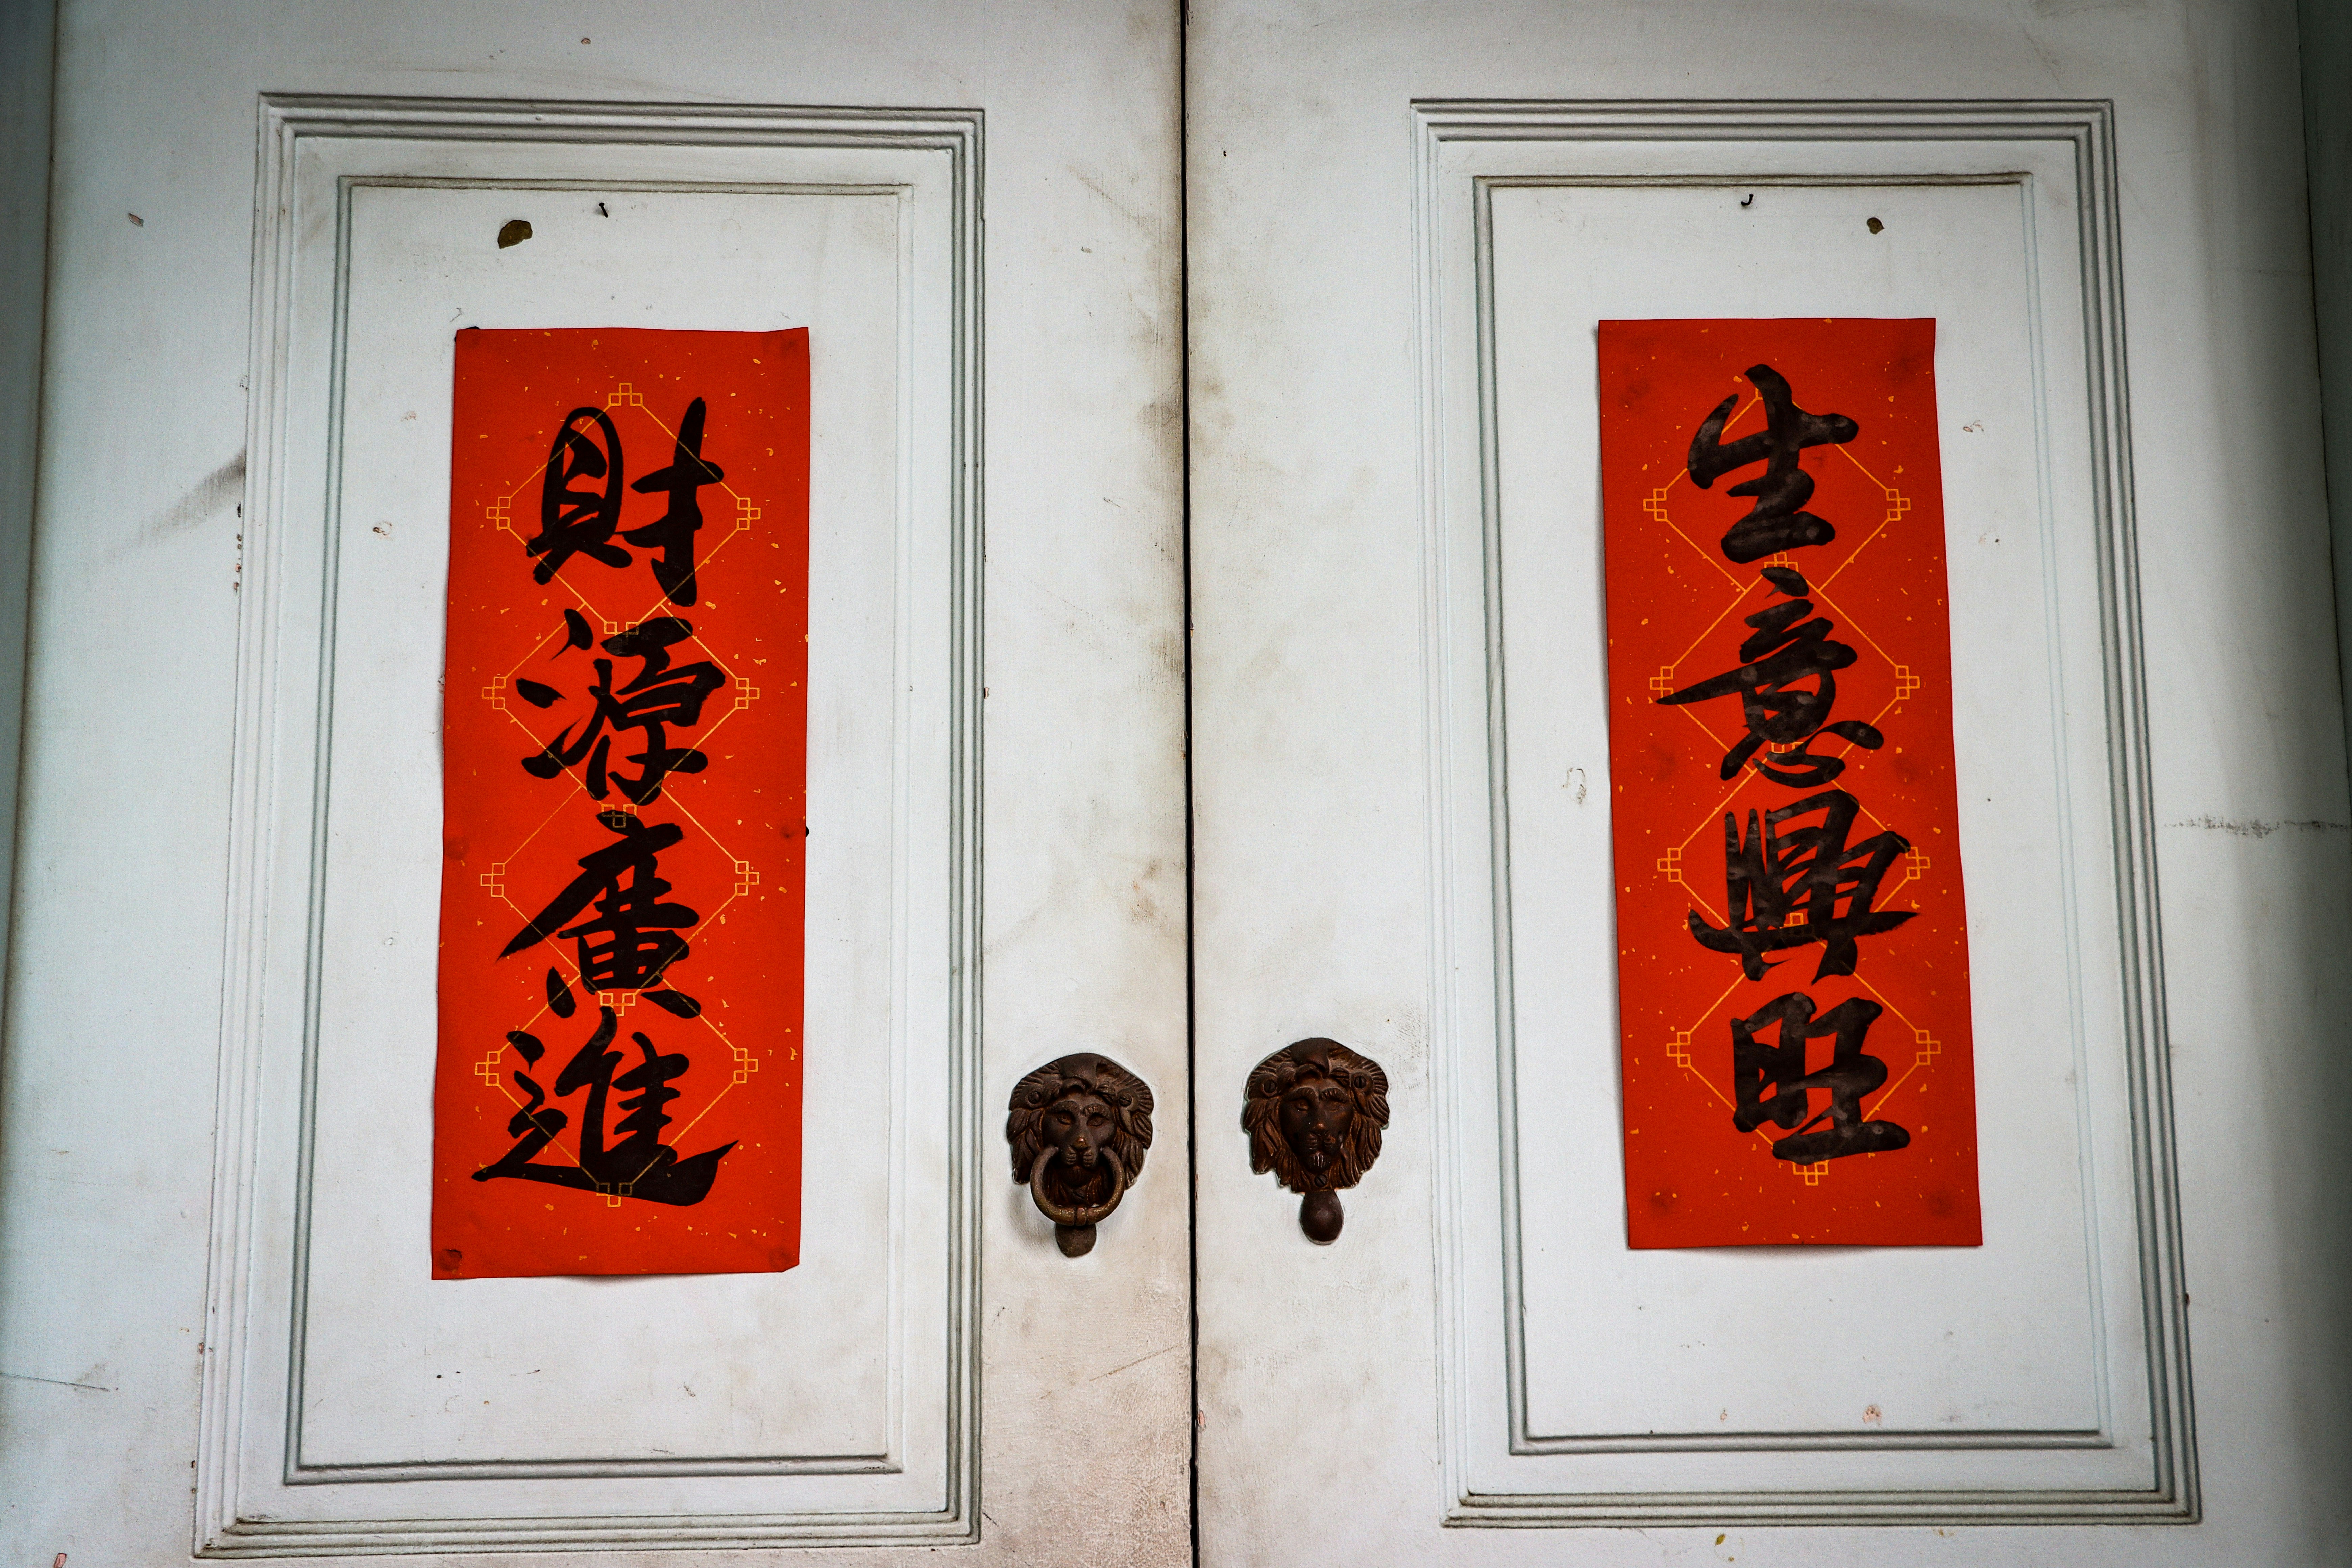 生意興旺
財源廣進